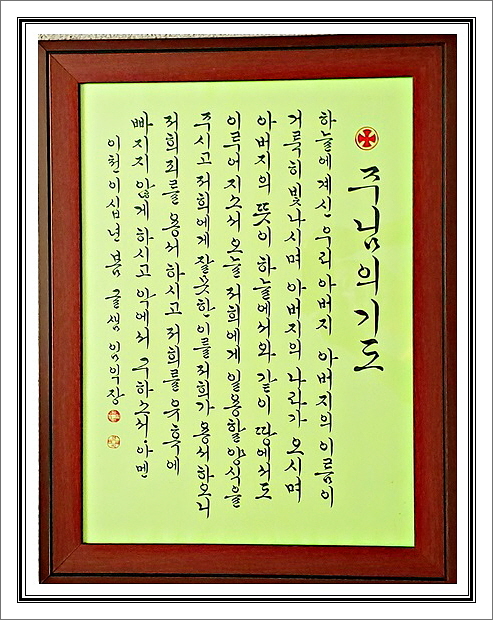 주님의기도
하늘에 계신 우리 아버지 아버지의 이름이
거룩히 빛나시며 아버지의 나라가 오시며
아버지의 뜻이 하늘에서와 같이 땅에서도
이루어지소서 오늘 저희에게 일용할 양식을
주시고 저희에게 잘못한 이를 저희가 용서하오니
저희 죄를 용서하시고 저희를 유혹에
빠지지 않게 하시고 악에서 구하소서. 아멘
이천이십년 봄 글샘 임익장